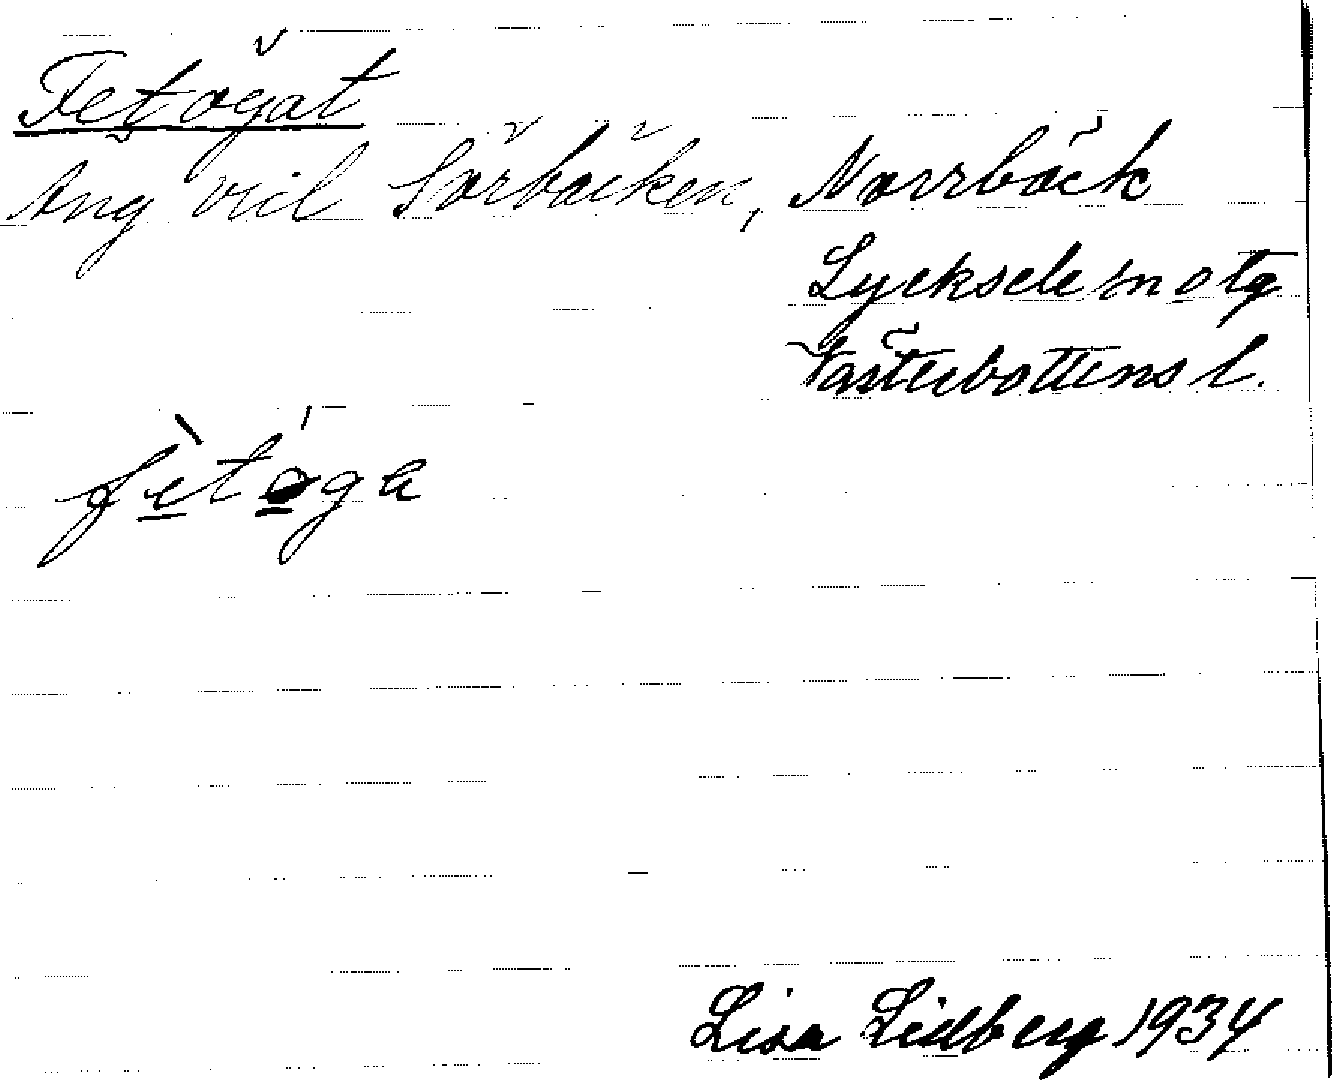 Fetögat
Äng vid Sörbäcken, Norrbäck
Lycksele sn o tg
Västerbottens l.
fètö́ga
Lisa Lidberg 1934